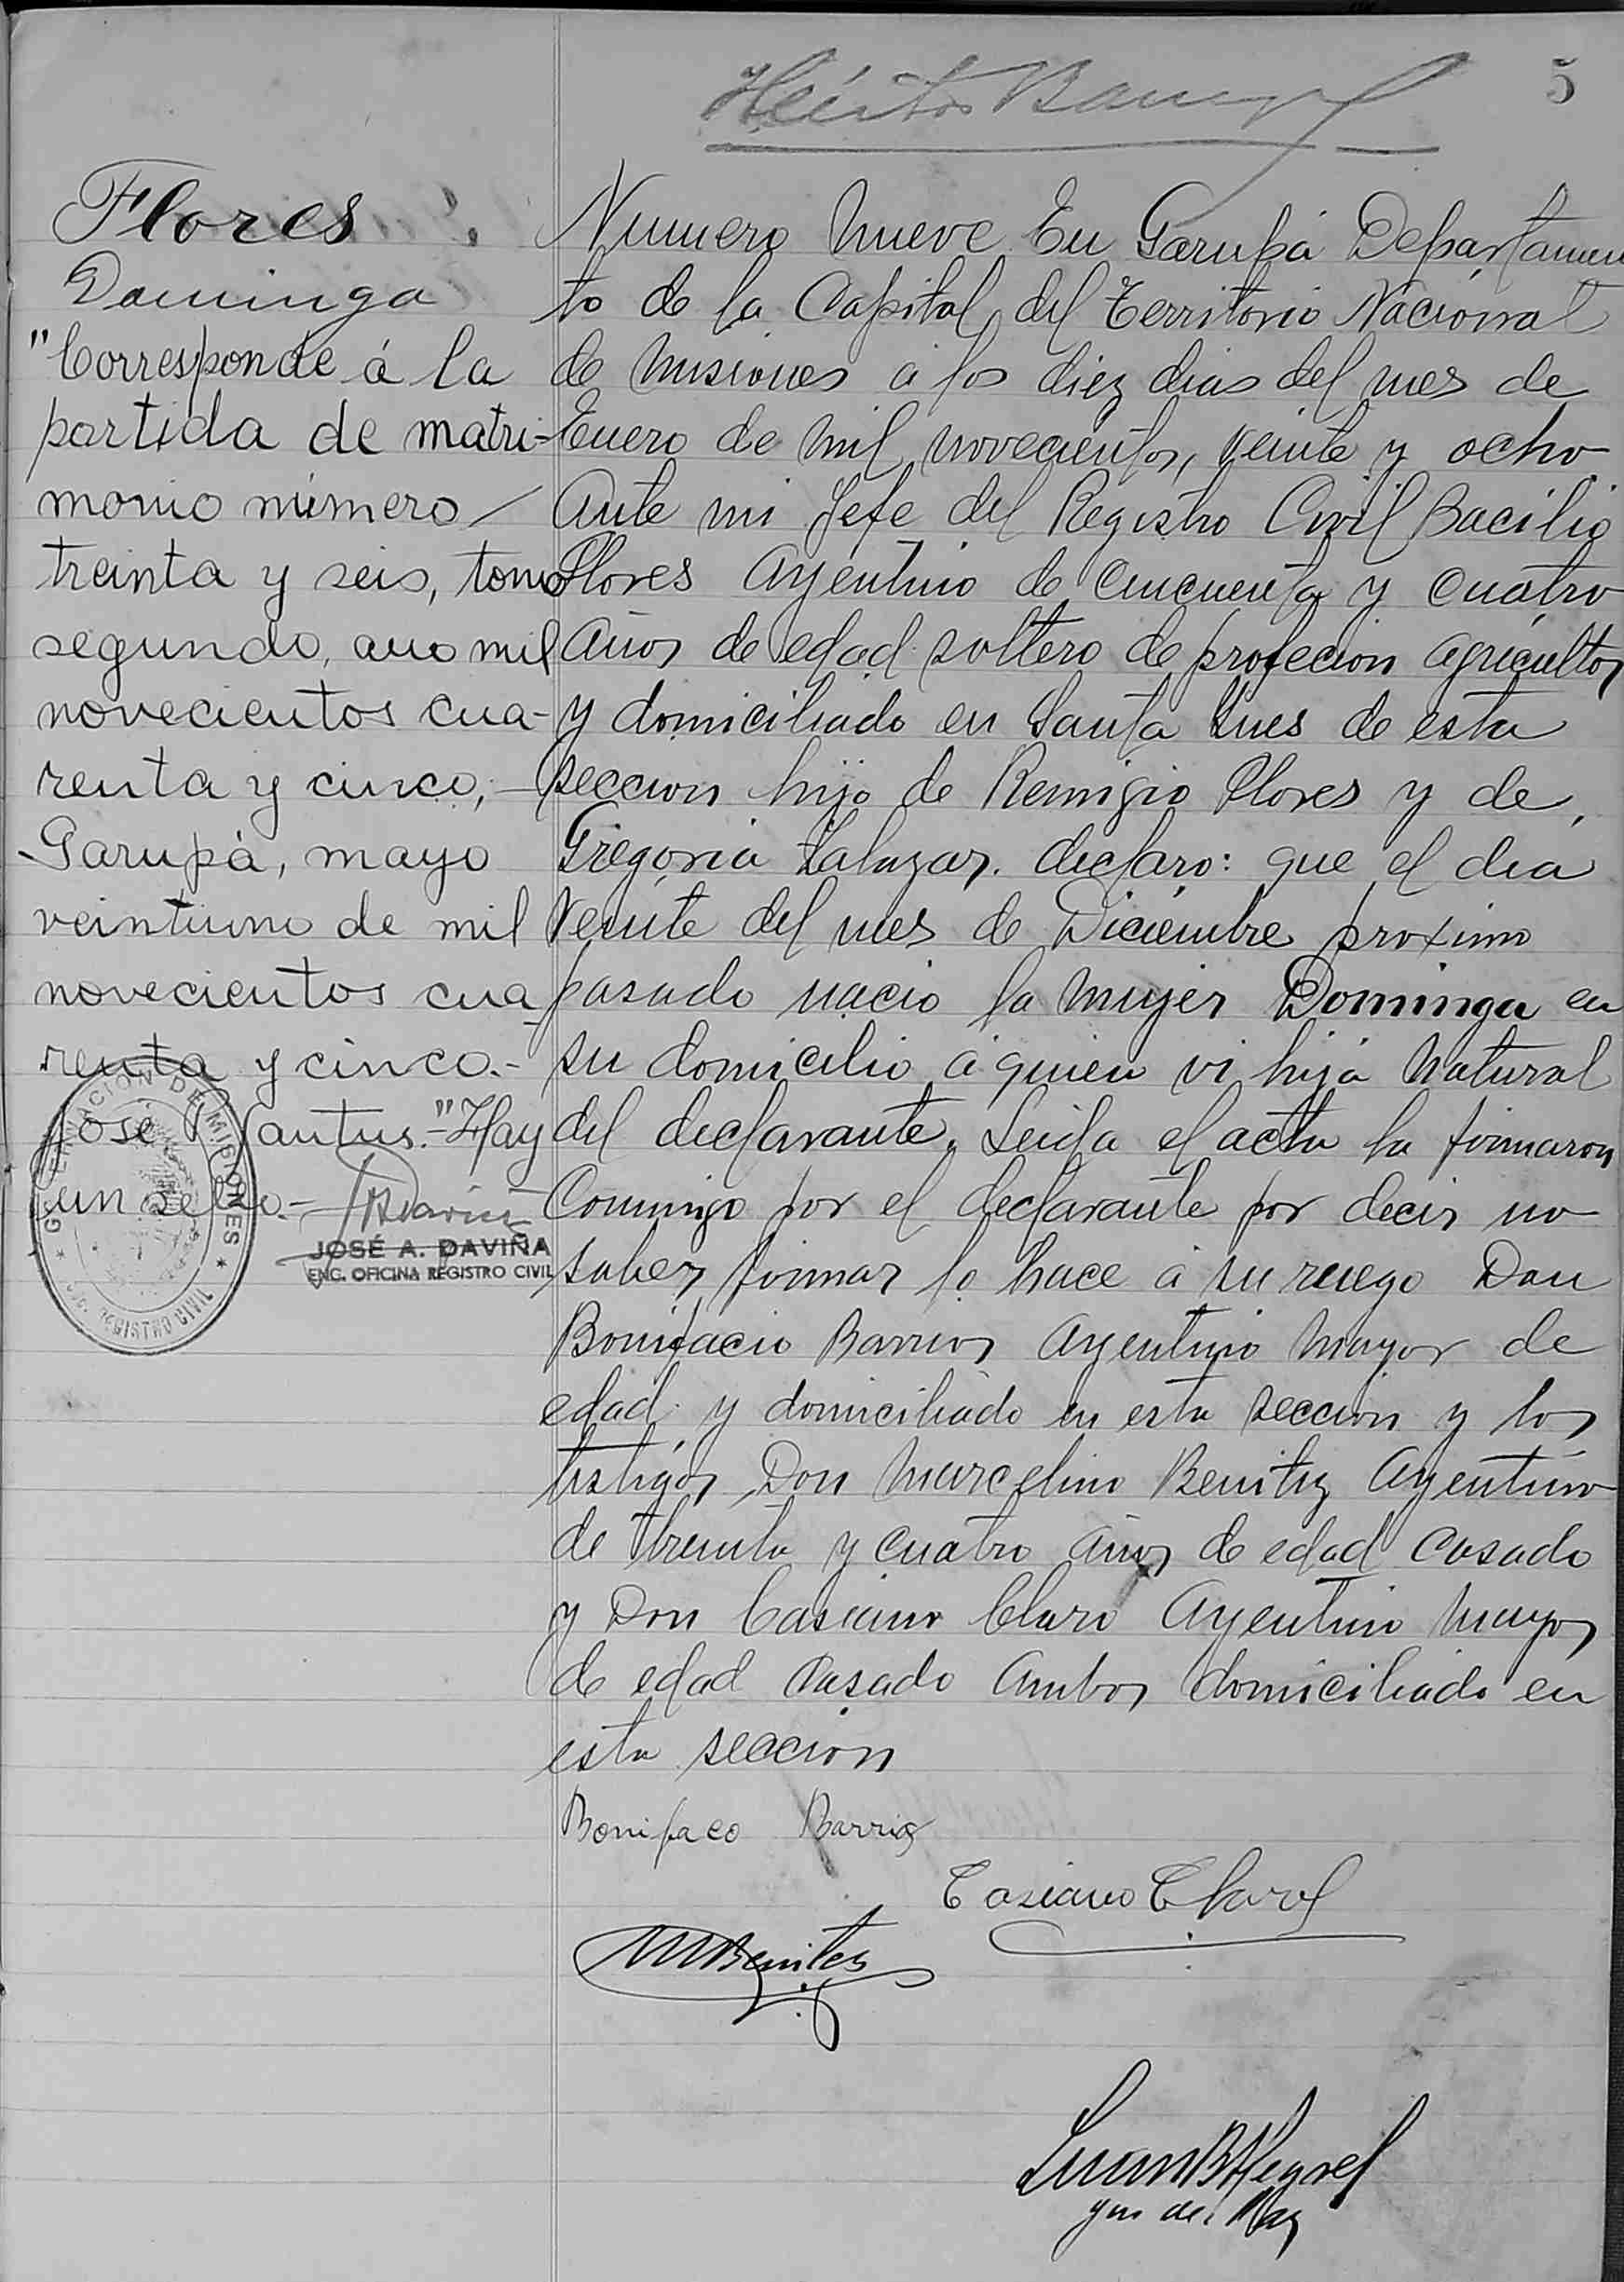 5
Flores
Dominga
"Corresponde á la
partida de matri-
monio número
treinta y seis, tomo
segundo, año mil
novecientos cua-
renta y cinco,
Garupá, mayo
veintiuno de mil
novecientos cua
renta y cinco.-
José Santus.-" Hay
un sello.-
JOSÉ A. DAVIÑA
ENC. OFICINA REGISTRO CIVIL
GOBERNACION DE MISIONES
REGISTRO CIVIL
Numero nueve En Garupá Departamen
to de la Capital del Territorio Nacional
de Misiones a los diez dias del mes de
Enero de mil novecientos, veinte y ocho
Ante mi Jefe del Registro Civil Bacilio
Flores Argentino de cincuenta y cuatro
años de edad soltero de profecion agricultor
y domiciliado en Santa Ines de esta
seccion hijo de Remigio Flores y de
Gregoria Salazar. declaro: que el dia
veinte del mes de Diciembre proximo
pasado nacio la mujer Dominga en
su domicilio á quien vi hija natural
del declarante. Leida el acta la firmaron
Comigo por el declarante por decir no
saber firmar lo hace a su ruego Don
Bonifacio Barrios Argentino mayor de
edad y domiciliado en esta seccion y los
testigos Don Marcelino Benitez Argentino
de treinta y cuatro años de edad casado
y Don Casiano Claro Argentino mayor
de edad casado ambos domiciliado en
esta seccion
Bonifaco Barrios
Casiano Claro
M Benitez